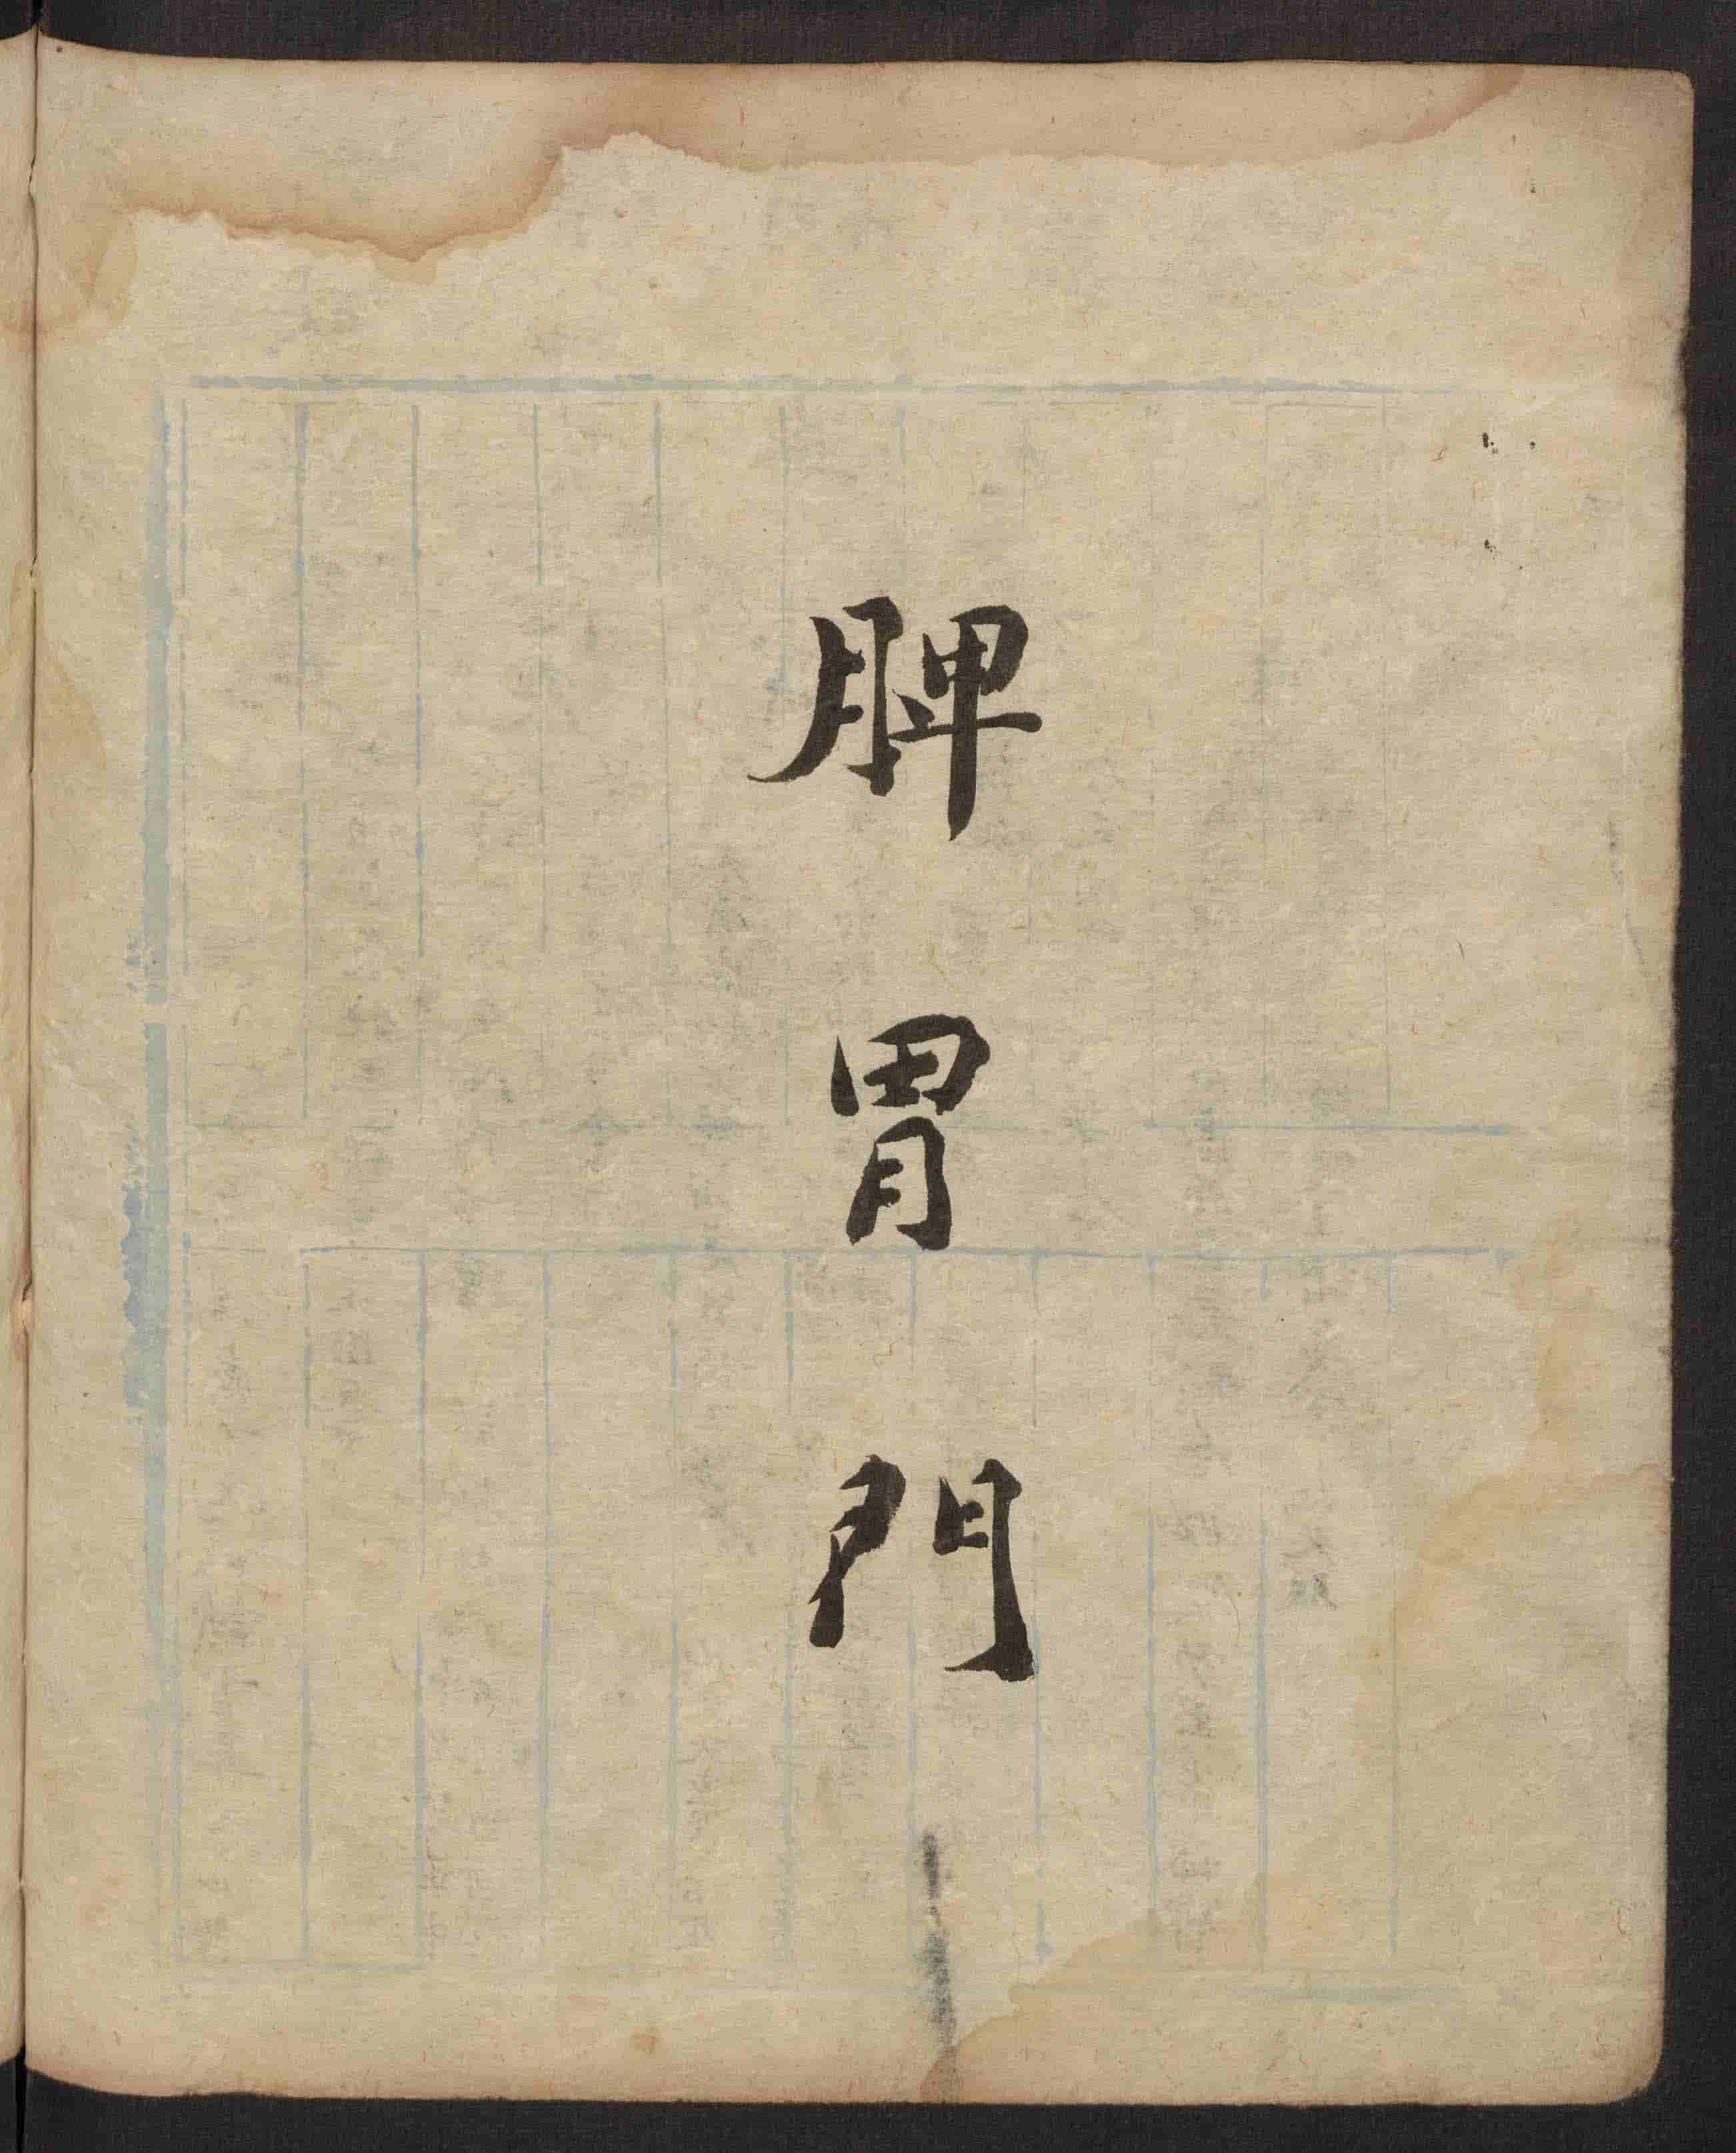 脾胃門